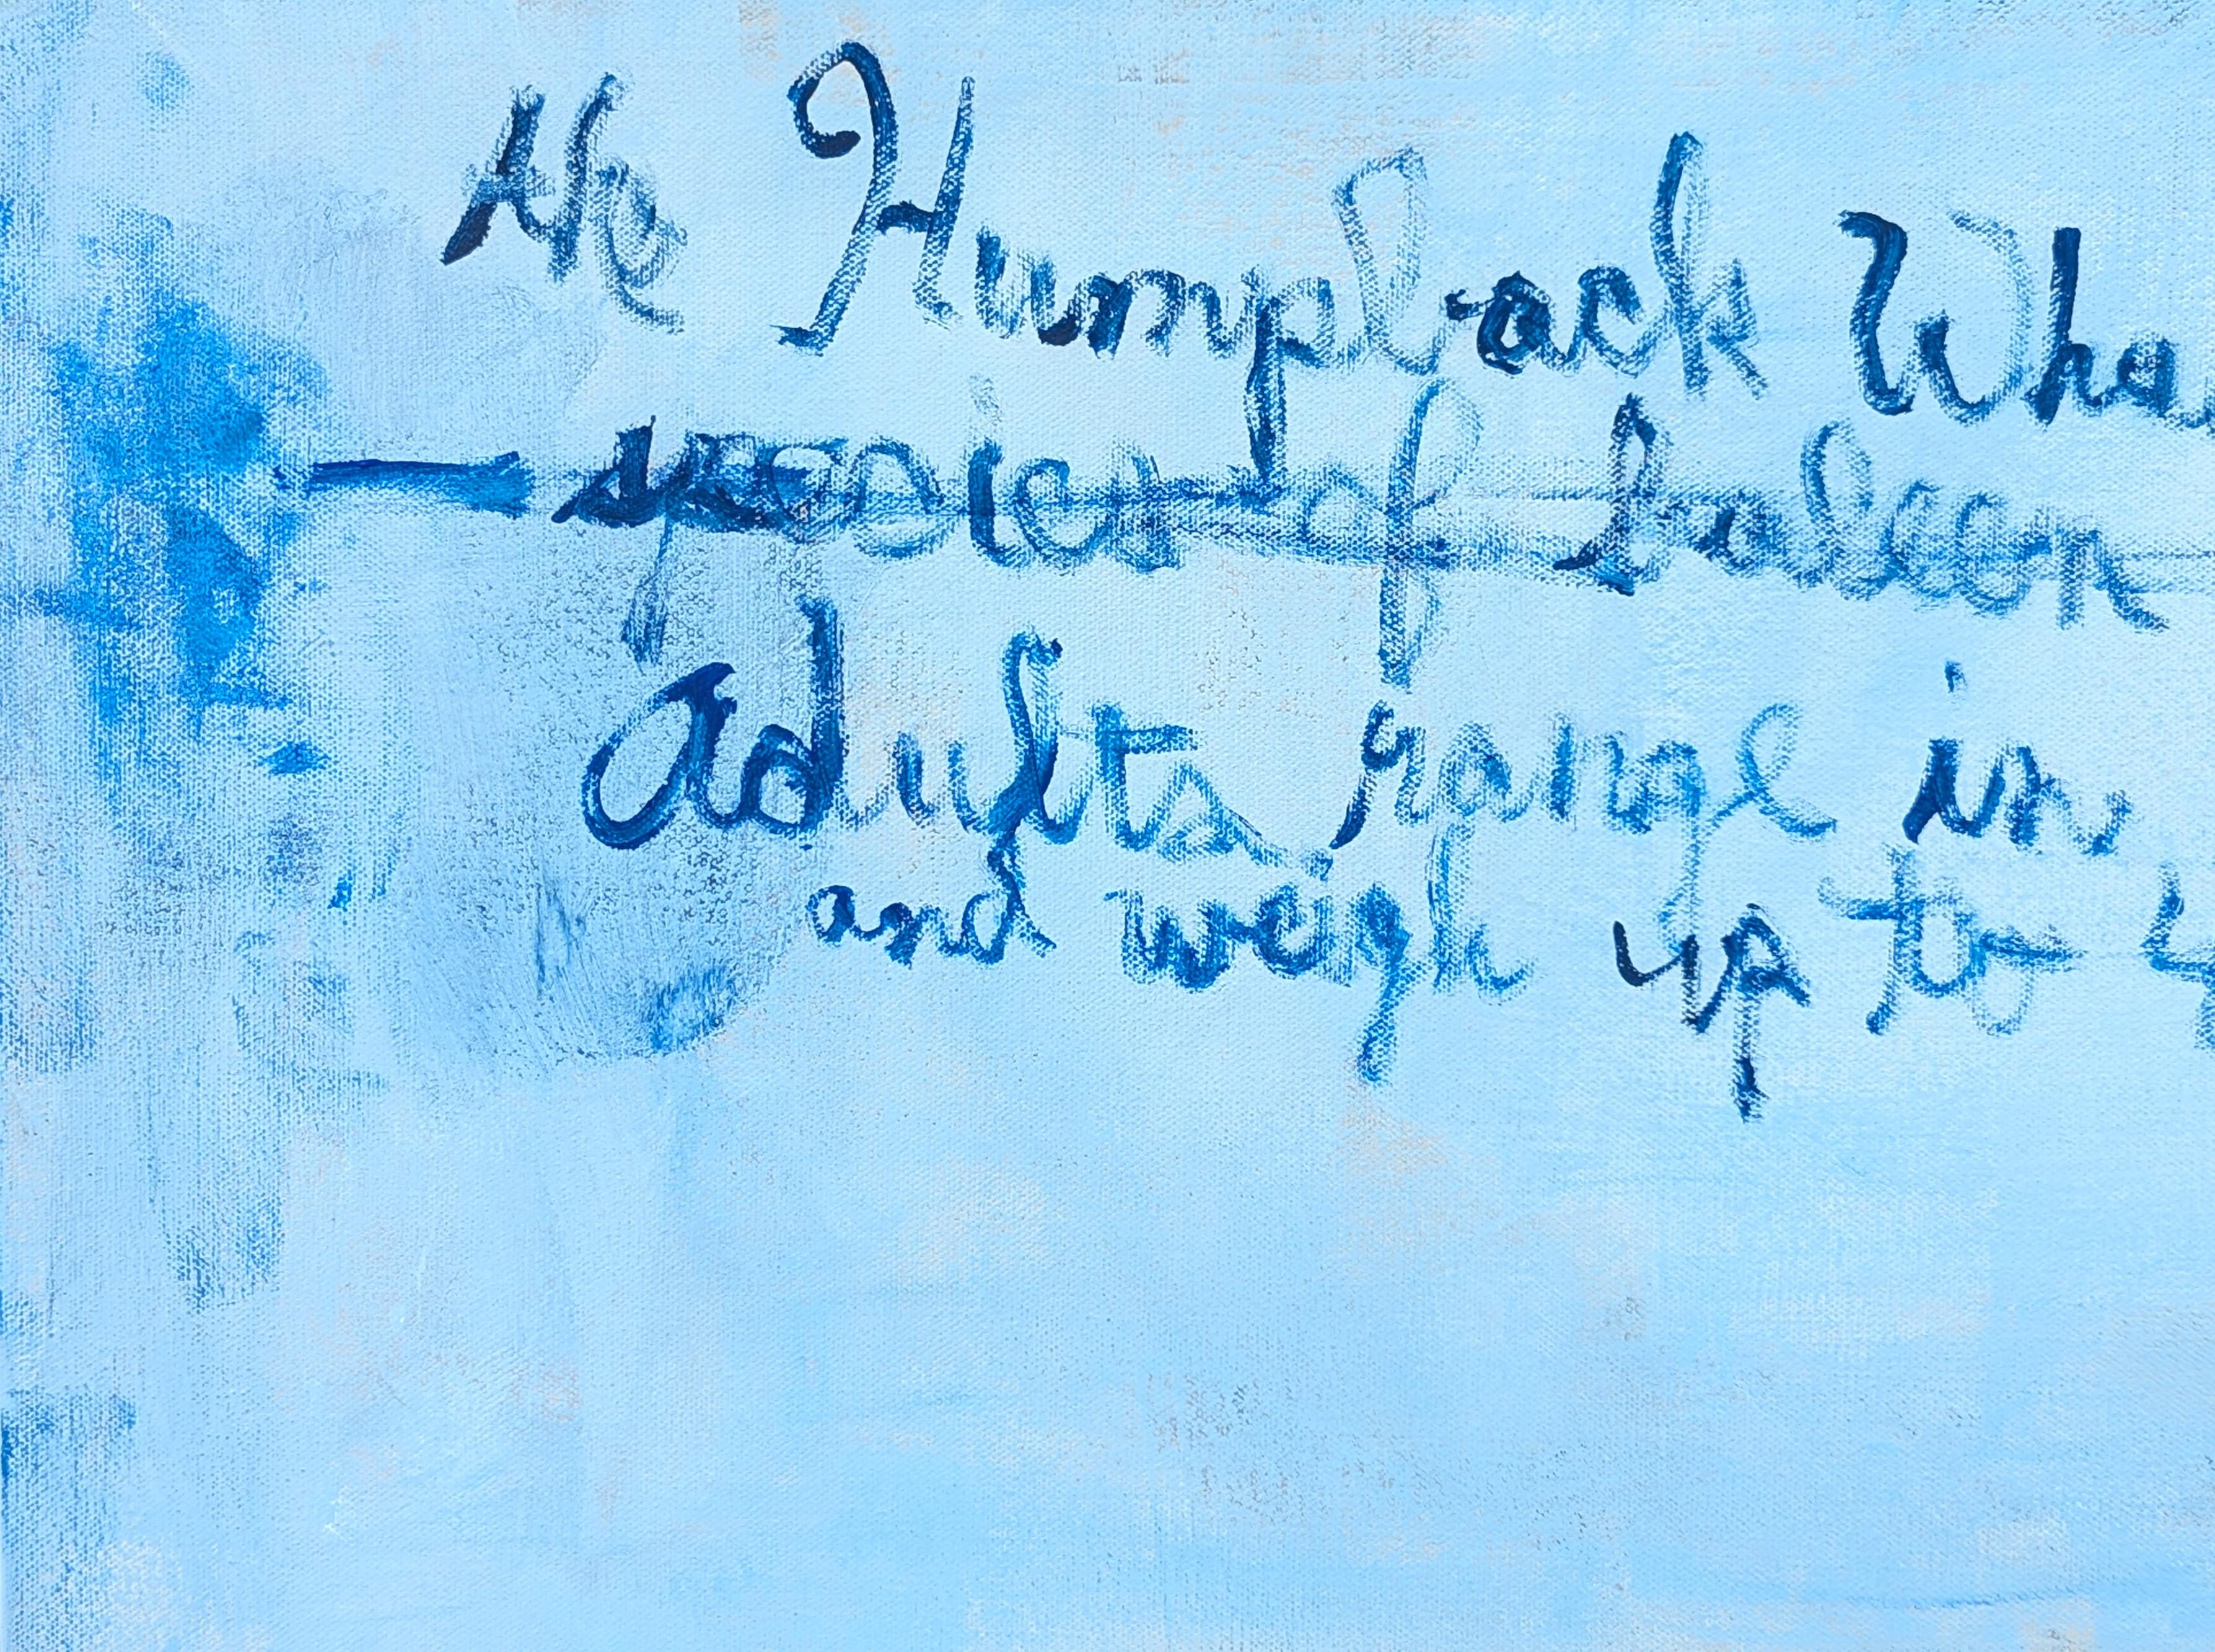 the Humpback Wha
species of baleen
Adults, range in
and weigh up to